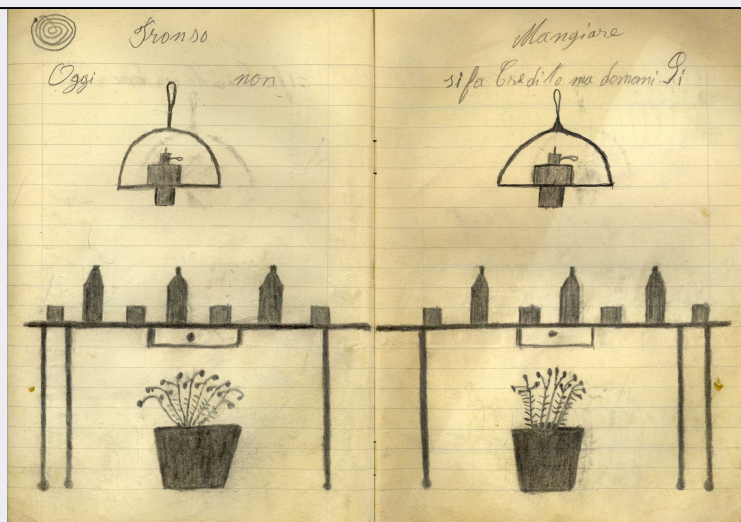 Oggi non
Mangiare
si fa Credito ma domani Si